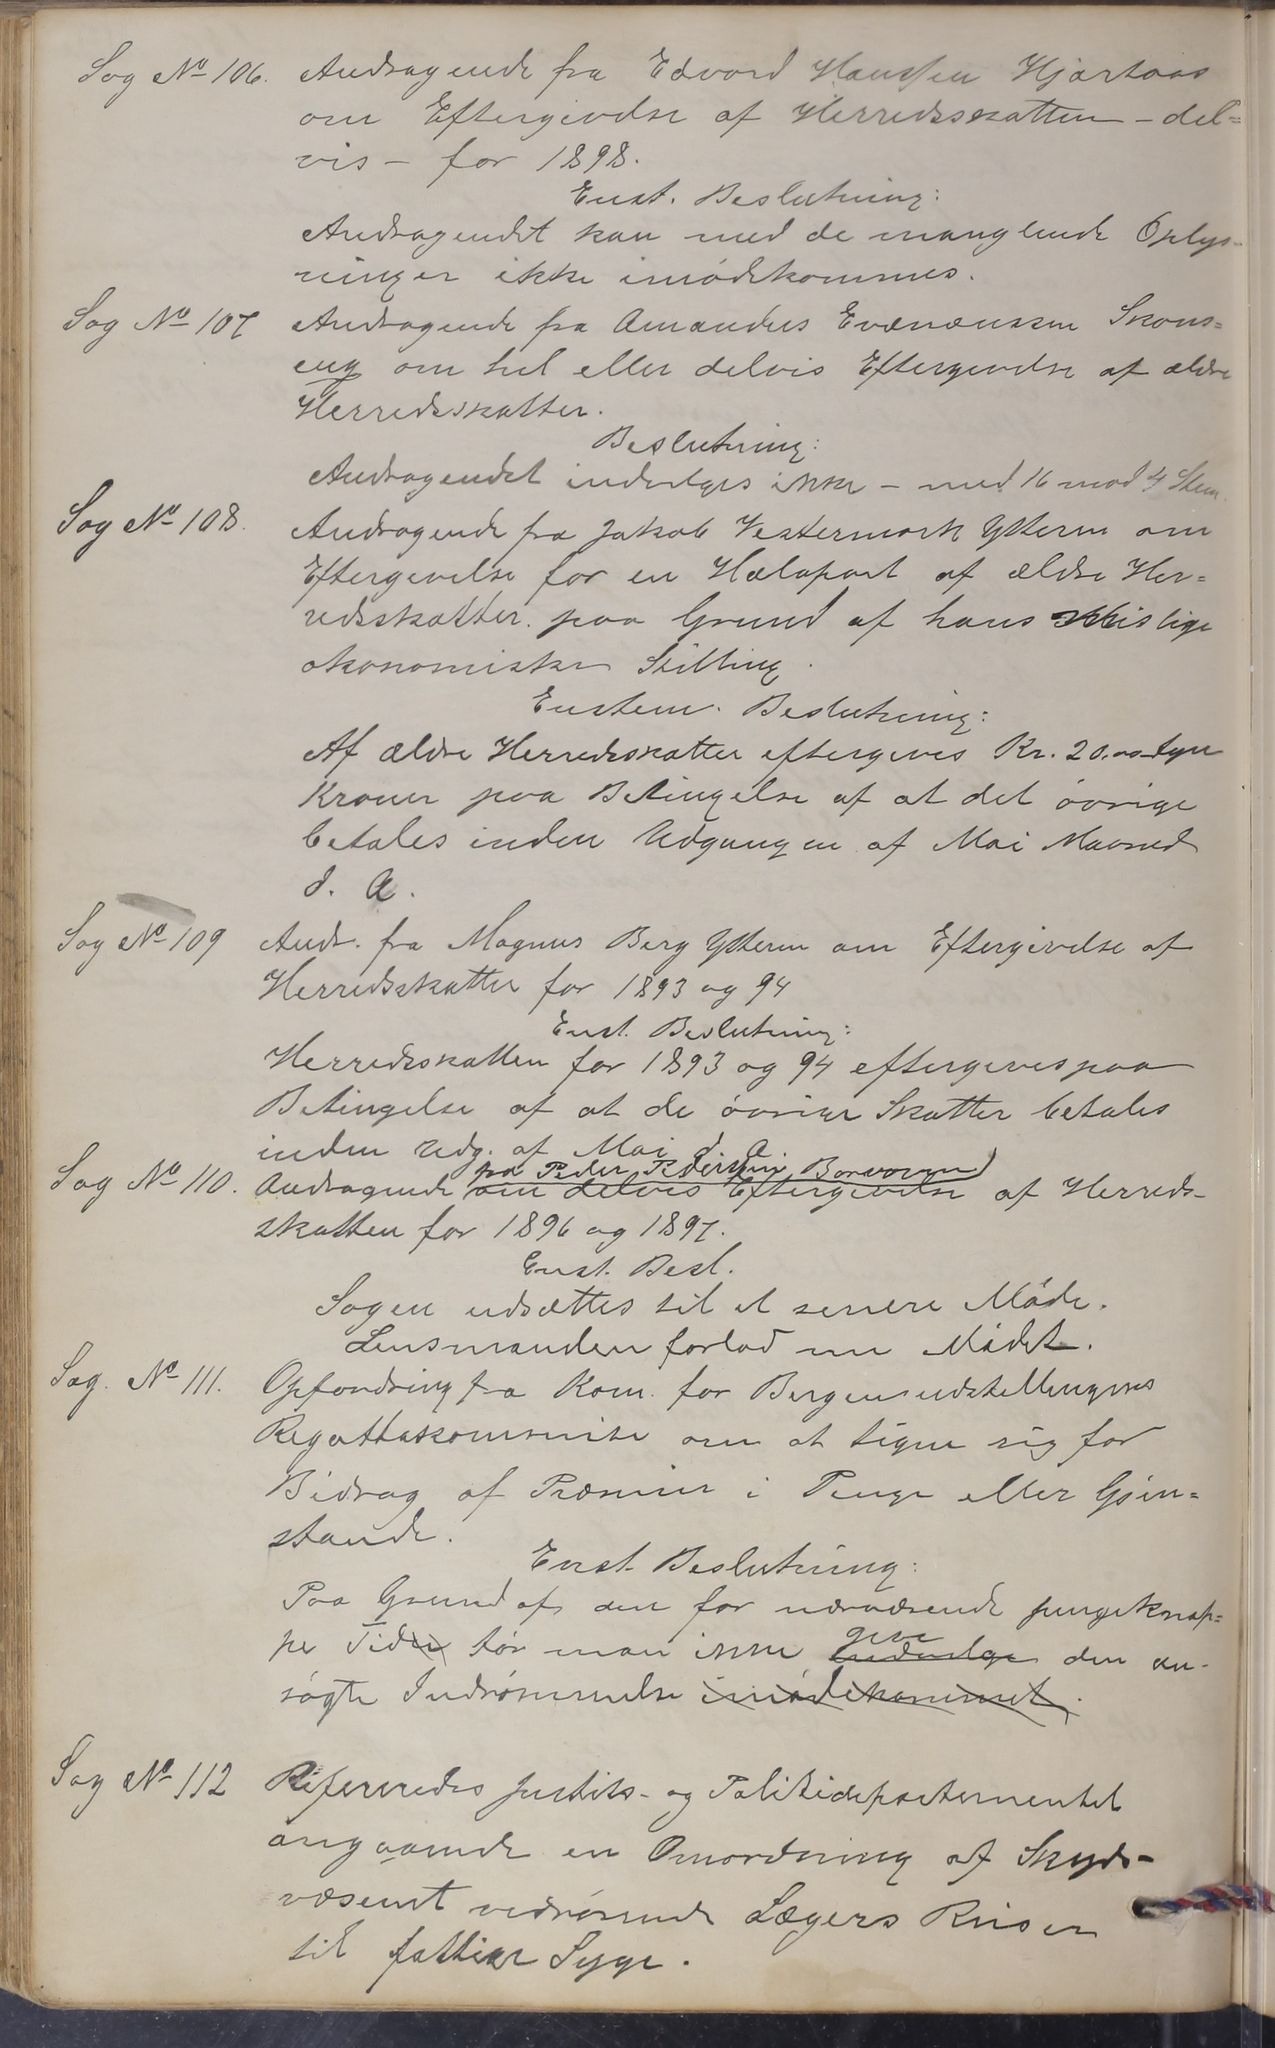 Sag No 106. Andragende fra Edvard Hanssen Hjartaas
om Eftergivelse af Herredsskatten - del=
vis - for 1898.
Enst. Beslutning:
Andragendet kan med de manglende Oplys-
ninger ikke imødekommes.
Sag No 107 Andragende fra Amandus Skons=
eng om hel eller delvis Eftergivelse af ældre
Herredsskatter.
Beslutning:
Andragendet indvilges ikke - med 16 mod 4 Stem.
Sag No 108. Andragende fra Jakob Vestermark Ytteren om
Eftergivelse for en Halvpart af ældre Her=
redsskatter paa Grund af hans mislige
økonomiske Stilling.
Enstem. Beslutning:
Af ældre Herredsskatter eftergives Kr. 20.00 tyve
Kroner paa Betingelse af at det øvrige
betales inden Udgangen af Mai Maaned
d. A.
Sag No 109 Andr. fra Magnus Berg Ytteren om Eftergivelse af
Herredsskatter for 1893 og 94
Enst. Beslutning:
Herredsskatten for 1893 og 94 eftergives paa
Betingelse af at de øvrige Skatter betales
inden Udg. af Mai d. A.
fra Peder Pedersen
Sag No 110. Andragende om delvis Eftergivelse af Herreds-
skatten for 1896 og 1897.
Enst. Besl.
Sagen udsættes til et senere Møde.
Lensmanden forlod nu Mødet.
Sag. No 111. Opfordring fra Kom. for Bergensudstillingens
Regattakommite om at tegne sig for
Bidrag af Præmier i Penge eller Gjen=
stande.
Enst. Beslutning:
Paa Grund af den for nærværende pengeknap=
give
pe Tiden tør man ikke indvilge den an-
søgte Indrømmelse imødekommet.
Sag No 112 Refereredes Justits- og Politidepartementet
angaaende en Omordning af Skyds-
væsenet vedrørende Lægers Reiser
til fattige Syge.